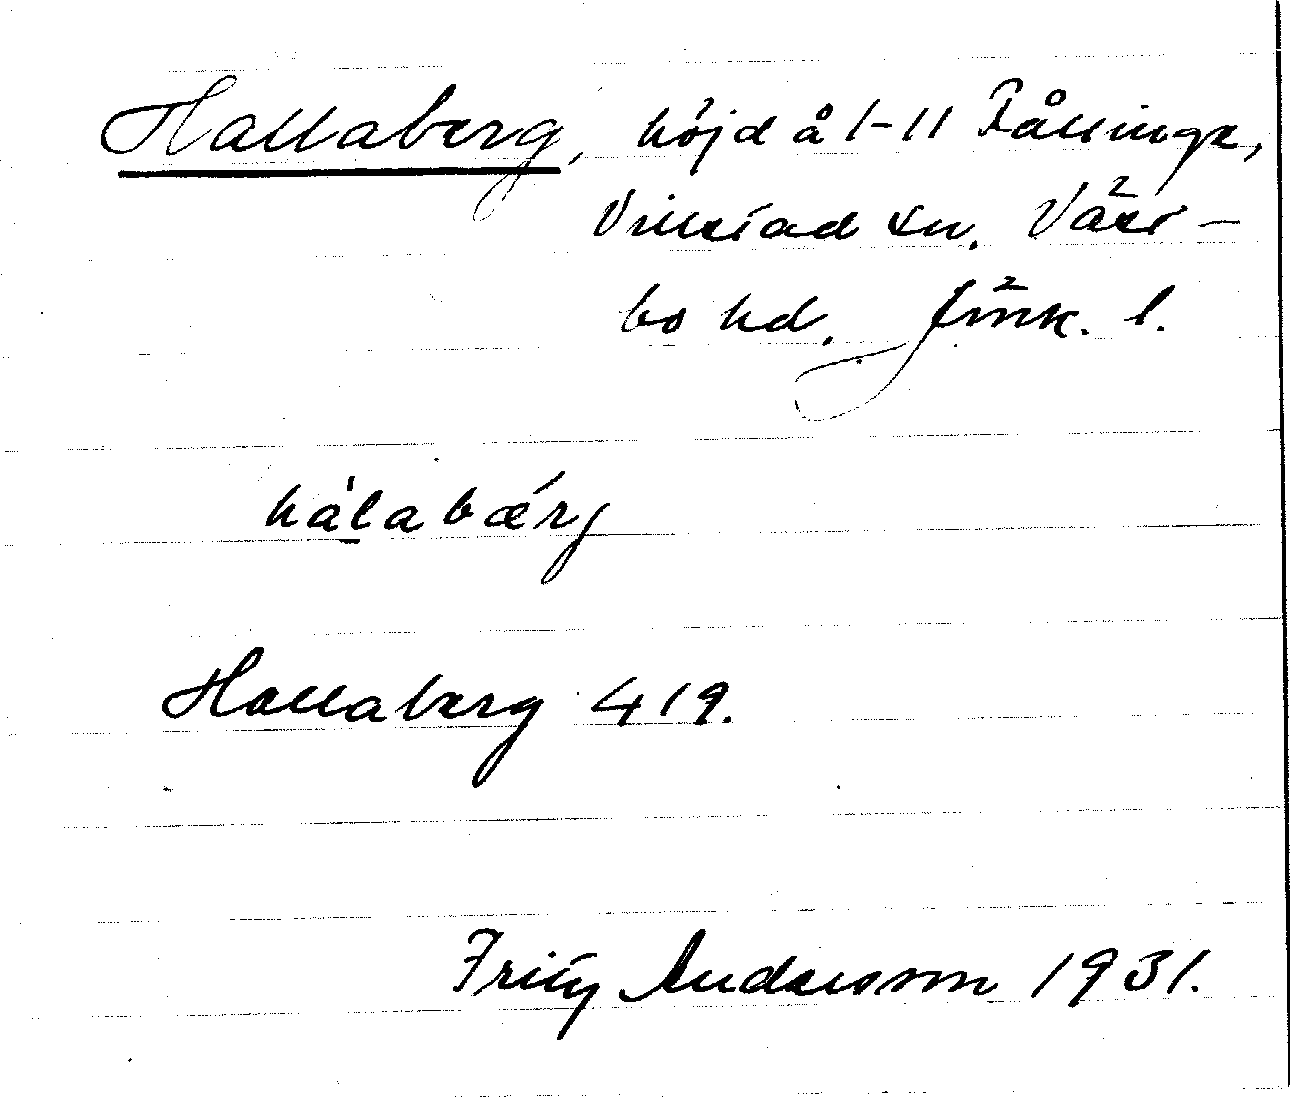 Hallaberg, höjd å 1-11 Fållinge,
Villstad sn. Väst-
bo hd. Jönk. l.
hàlabǽrg
Hallaberg 419.
Fritz Andersson 1931.